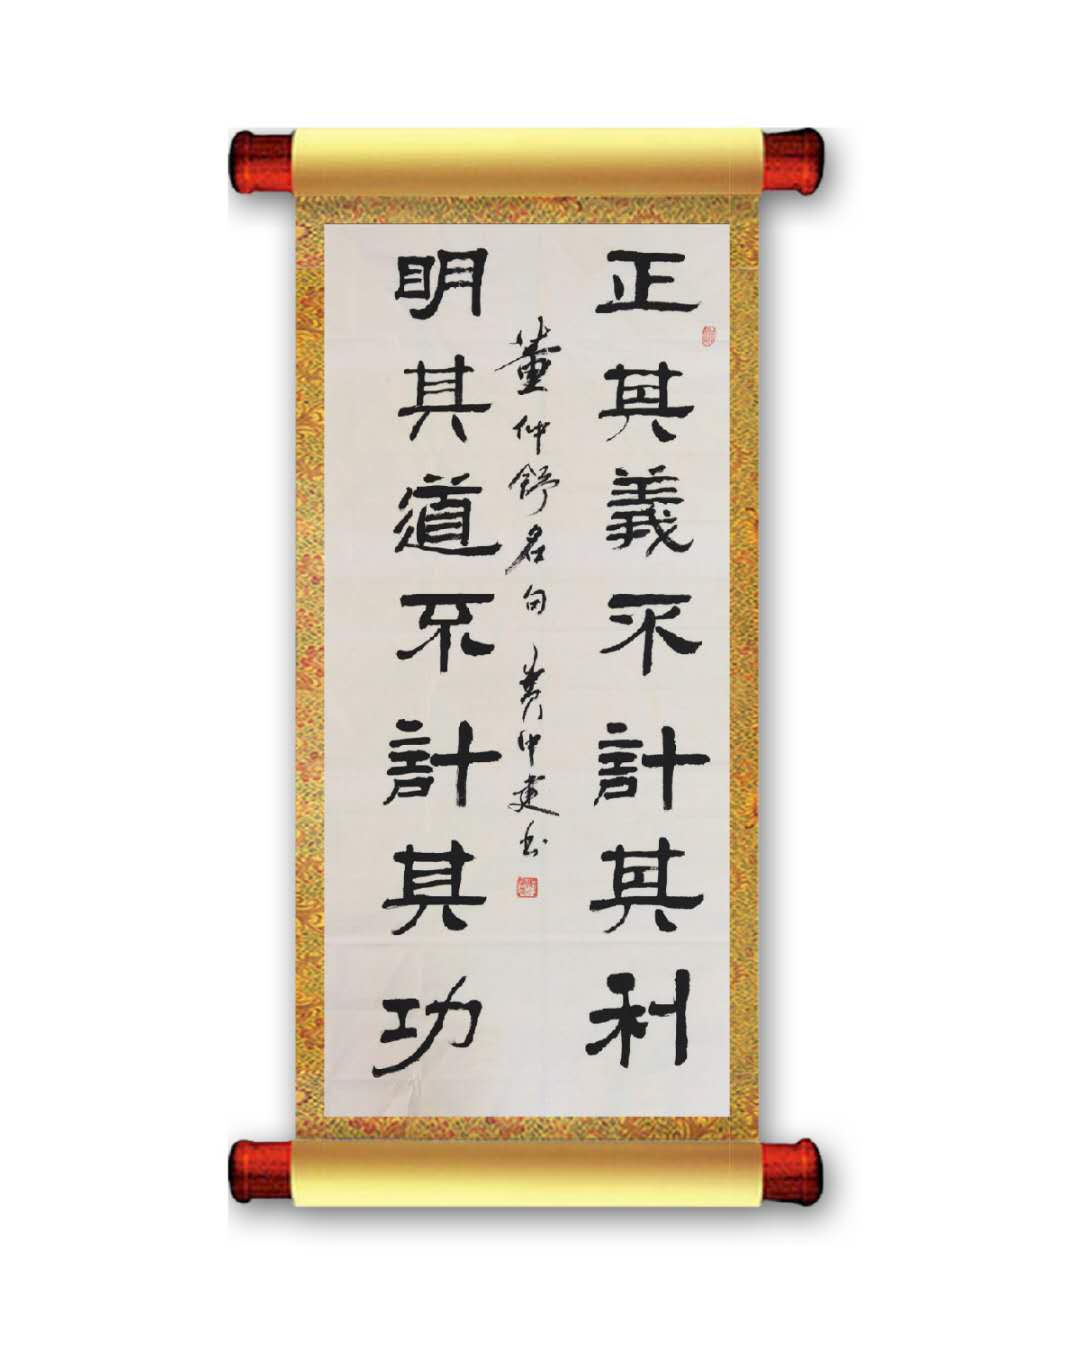 正其義不計其利
明其道不計其功
董仲舒名句 黄中建书